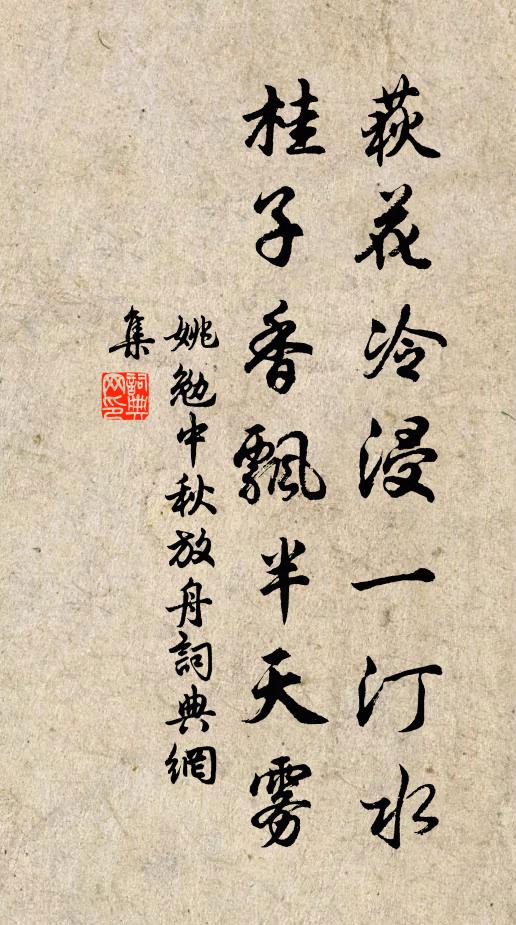 萩花冷浸一汀水
桂子香飄半天雾
姚勉中秋放舟詞典網
集
詞典
网印